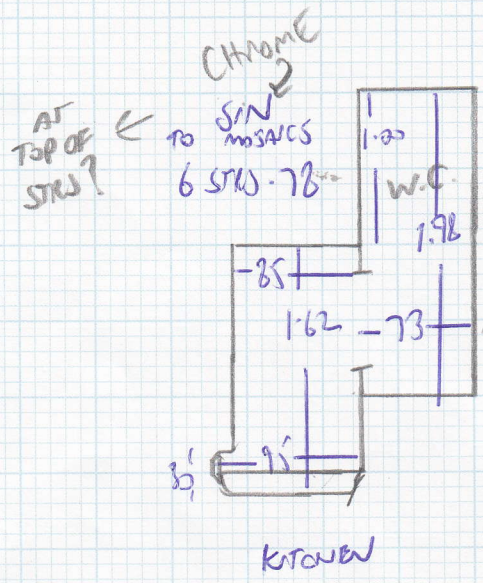 CHROME
AT
TOP OF
STRS?
SIN
TO MOSAICS
6 STRS .78
1.00
W.C.
1.98
.85
1.62
.73
.95
KITCHEN